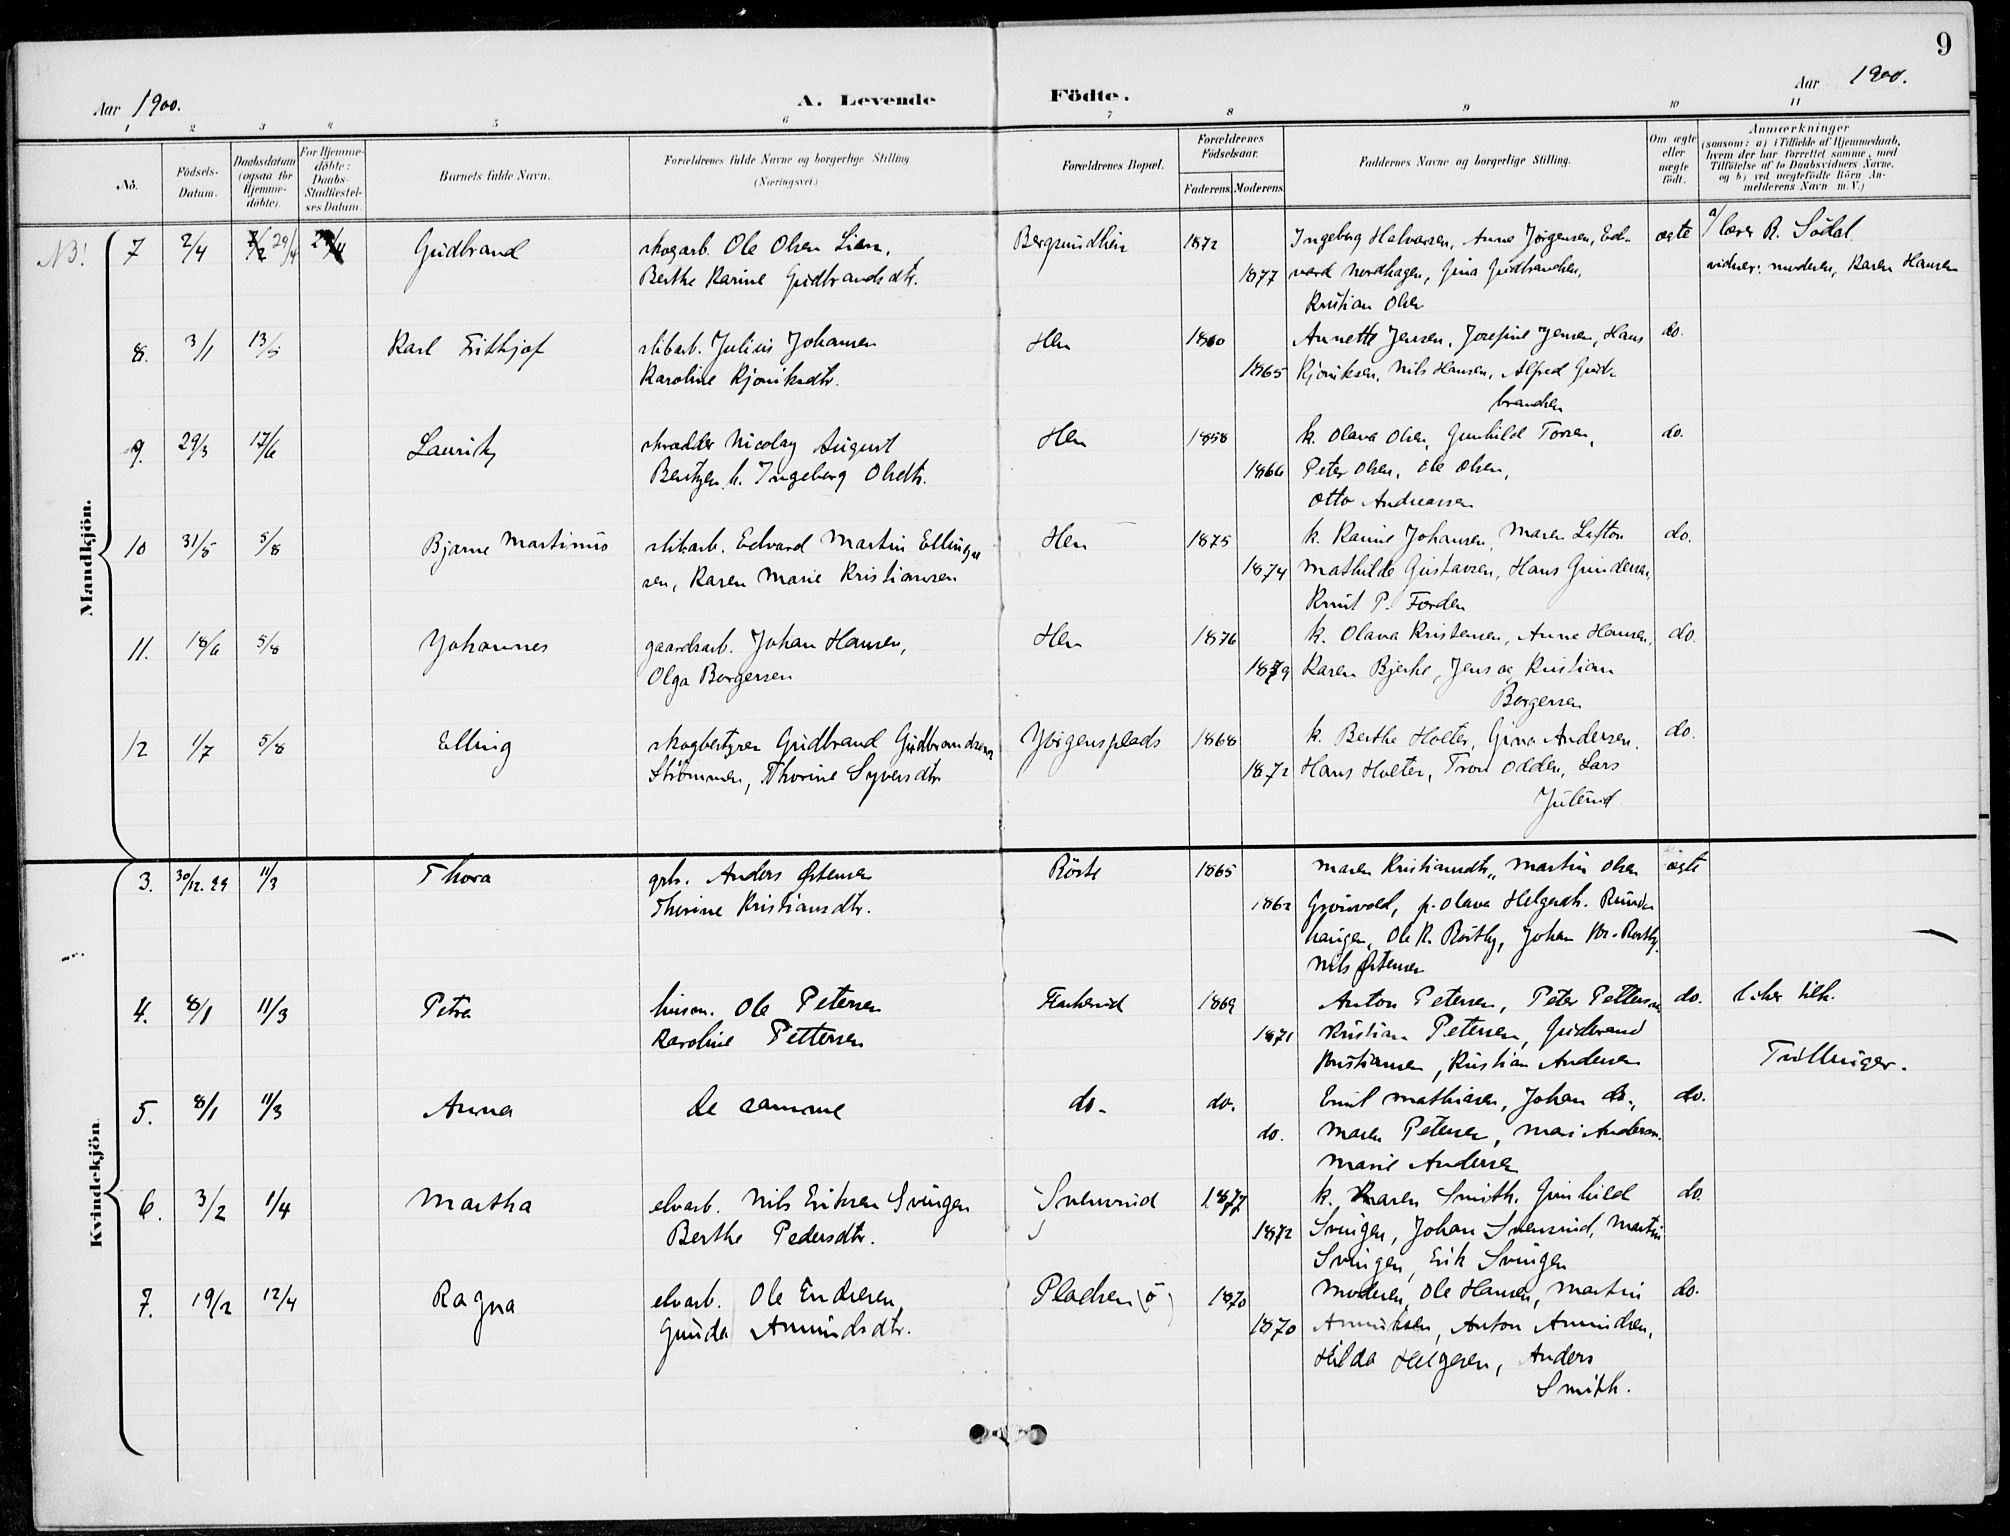 9
Aar 1900.
A. Levende Födte.
Aar 1900.
1 2 3 4 5 6 7 8 9 10 11
No.
Födsels-Datum.
Daabsdatum (ogsaa for Hjemme-döbte).
For Hjemme-döbte: Daabs-Stadfæstel-ses Datum.
Barnets fulde Navn.
Forældrenes fulde Navne og borgerlige Stilling
(Næringsvei.)
Forældrenes Bopæl.
Forældrenes Födselsaar.
Faderens. Moderens.
Faddernes Navne og borgerlige Stilling.
Om ægte eller uægte födt.
Anmærkninger
(saasom: a) i Tilfælde af Hjemmedaab, hvem der har forrettet samme, med Tilföielse af to Daabsvidners Navne, og b) ved uægtefödte Börn An-melderens Navn m. V.)
Mandkjön.
NB! 7 2/4 29/4 Gudbrand skogarb. Ole Olsen Lien, 1872 Ingeborg Halvorsen, Anne Jörgensen, Ed- ægte a/ lærer R. Södal
Berthe Karine Gudbrandsdtr. 1877 vard Nordhagen, Gina Gudbrandsen, vidner: moderen, Karen Hansen
Kristian Olsen
8. 3/1 13/5 Karl Frithjof slibarb. Julius Johansen Hen 1860 Annette Jensen, Josefine Jensen, Hans do.
Karoline Kjöniksdtr. 1865 Kjöniksen, Nils Hansen, Alfred Gud-
brandsen
9. 29/3 17/6 Lauritz skrædder Nicolay August Hen 1858 k. Olava Olsen, Gunhild Torsen, do.
Bentzen, h. Ingeborg Olsdtr. 1866 Peter Olsen, Ole Olsen,
Otto Andreassen
10 31/5 5/8 Bjarne Martinus slibarb. Edvard Martin Ellings- Hen 1875 k. Karine Johansen, Maren Lofton do.
sen, Karen Marie Kristiansen 1874 Mathilde Gustavsen, Hans Gundersen,
Knut P. Forden
11. 18/6 5/8 Johannes gaardsarb. Johan Hansen, Hen 1876 k. Olava Kristensen, Anne Hansen, do.
Olga Borgersen 1879 Karen Bjerke, Jens og Kristian
Borgersen
12 1/7 5/8 Elling skogbestyrer Gudbrand Gudbrandsen Jörgensplads 1868 k. Berthe Holter, Gina Andersen, do.
Strömmen, Thorine Syversdtr. 1872 Hans Holter, Tron Odden, Lars
Julerud
Kvindekjön.
3. 30/12. 99 11/3 Thora grb. Anders Östensen 1865 Maren Kristiansdtr., Martin Olsen ægte
Thorine Kristiansdtr. 1862 Grönvold, p. Olava Helgesdtr. Runden
haugen, Ole K. Rösthy, Johan
Nils Östensen
4. 8/1 11/3 Petra husm. Ole Petersen 1869 Anton Petersen, Peter Pettersen do.
Karoline Pettersen 1871 Kristian Petersen, Gudbrand
Kristiansen, Kristian Andersen Tvillinger.
5. 8/1 11/3 Anna de samme do. do. Emil Mathisen, Johan do., do.
do. Maren Petersen, Mari Andersen.
Marie Andersen
6. 3/2 1/4 Martha elvarb. Nils Eriksen Svingen 1877 k. Maren Smith, Gunhild do.
Berthe Pedersdtr. 1872 Svingen, Johan Svensrud, Martin
Svingen, Erik Svingen
7. 19/2 12/4 Ragna elvarb. Ole Endresen, Pladsen (ö) 1870 Moderen, Ole Hansen, Martin do.
Gunda Amundsdtr. 1870 Anton Amundsen,
Hilda Helgesen, Anders
Smith.